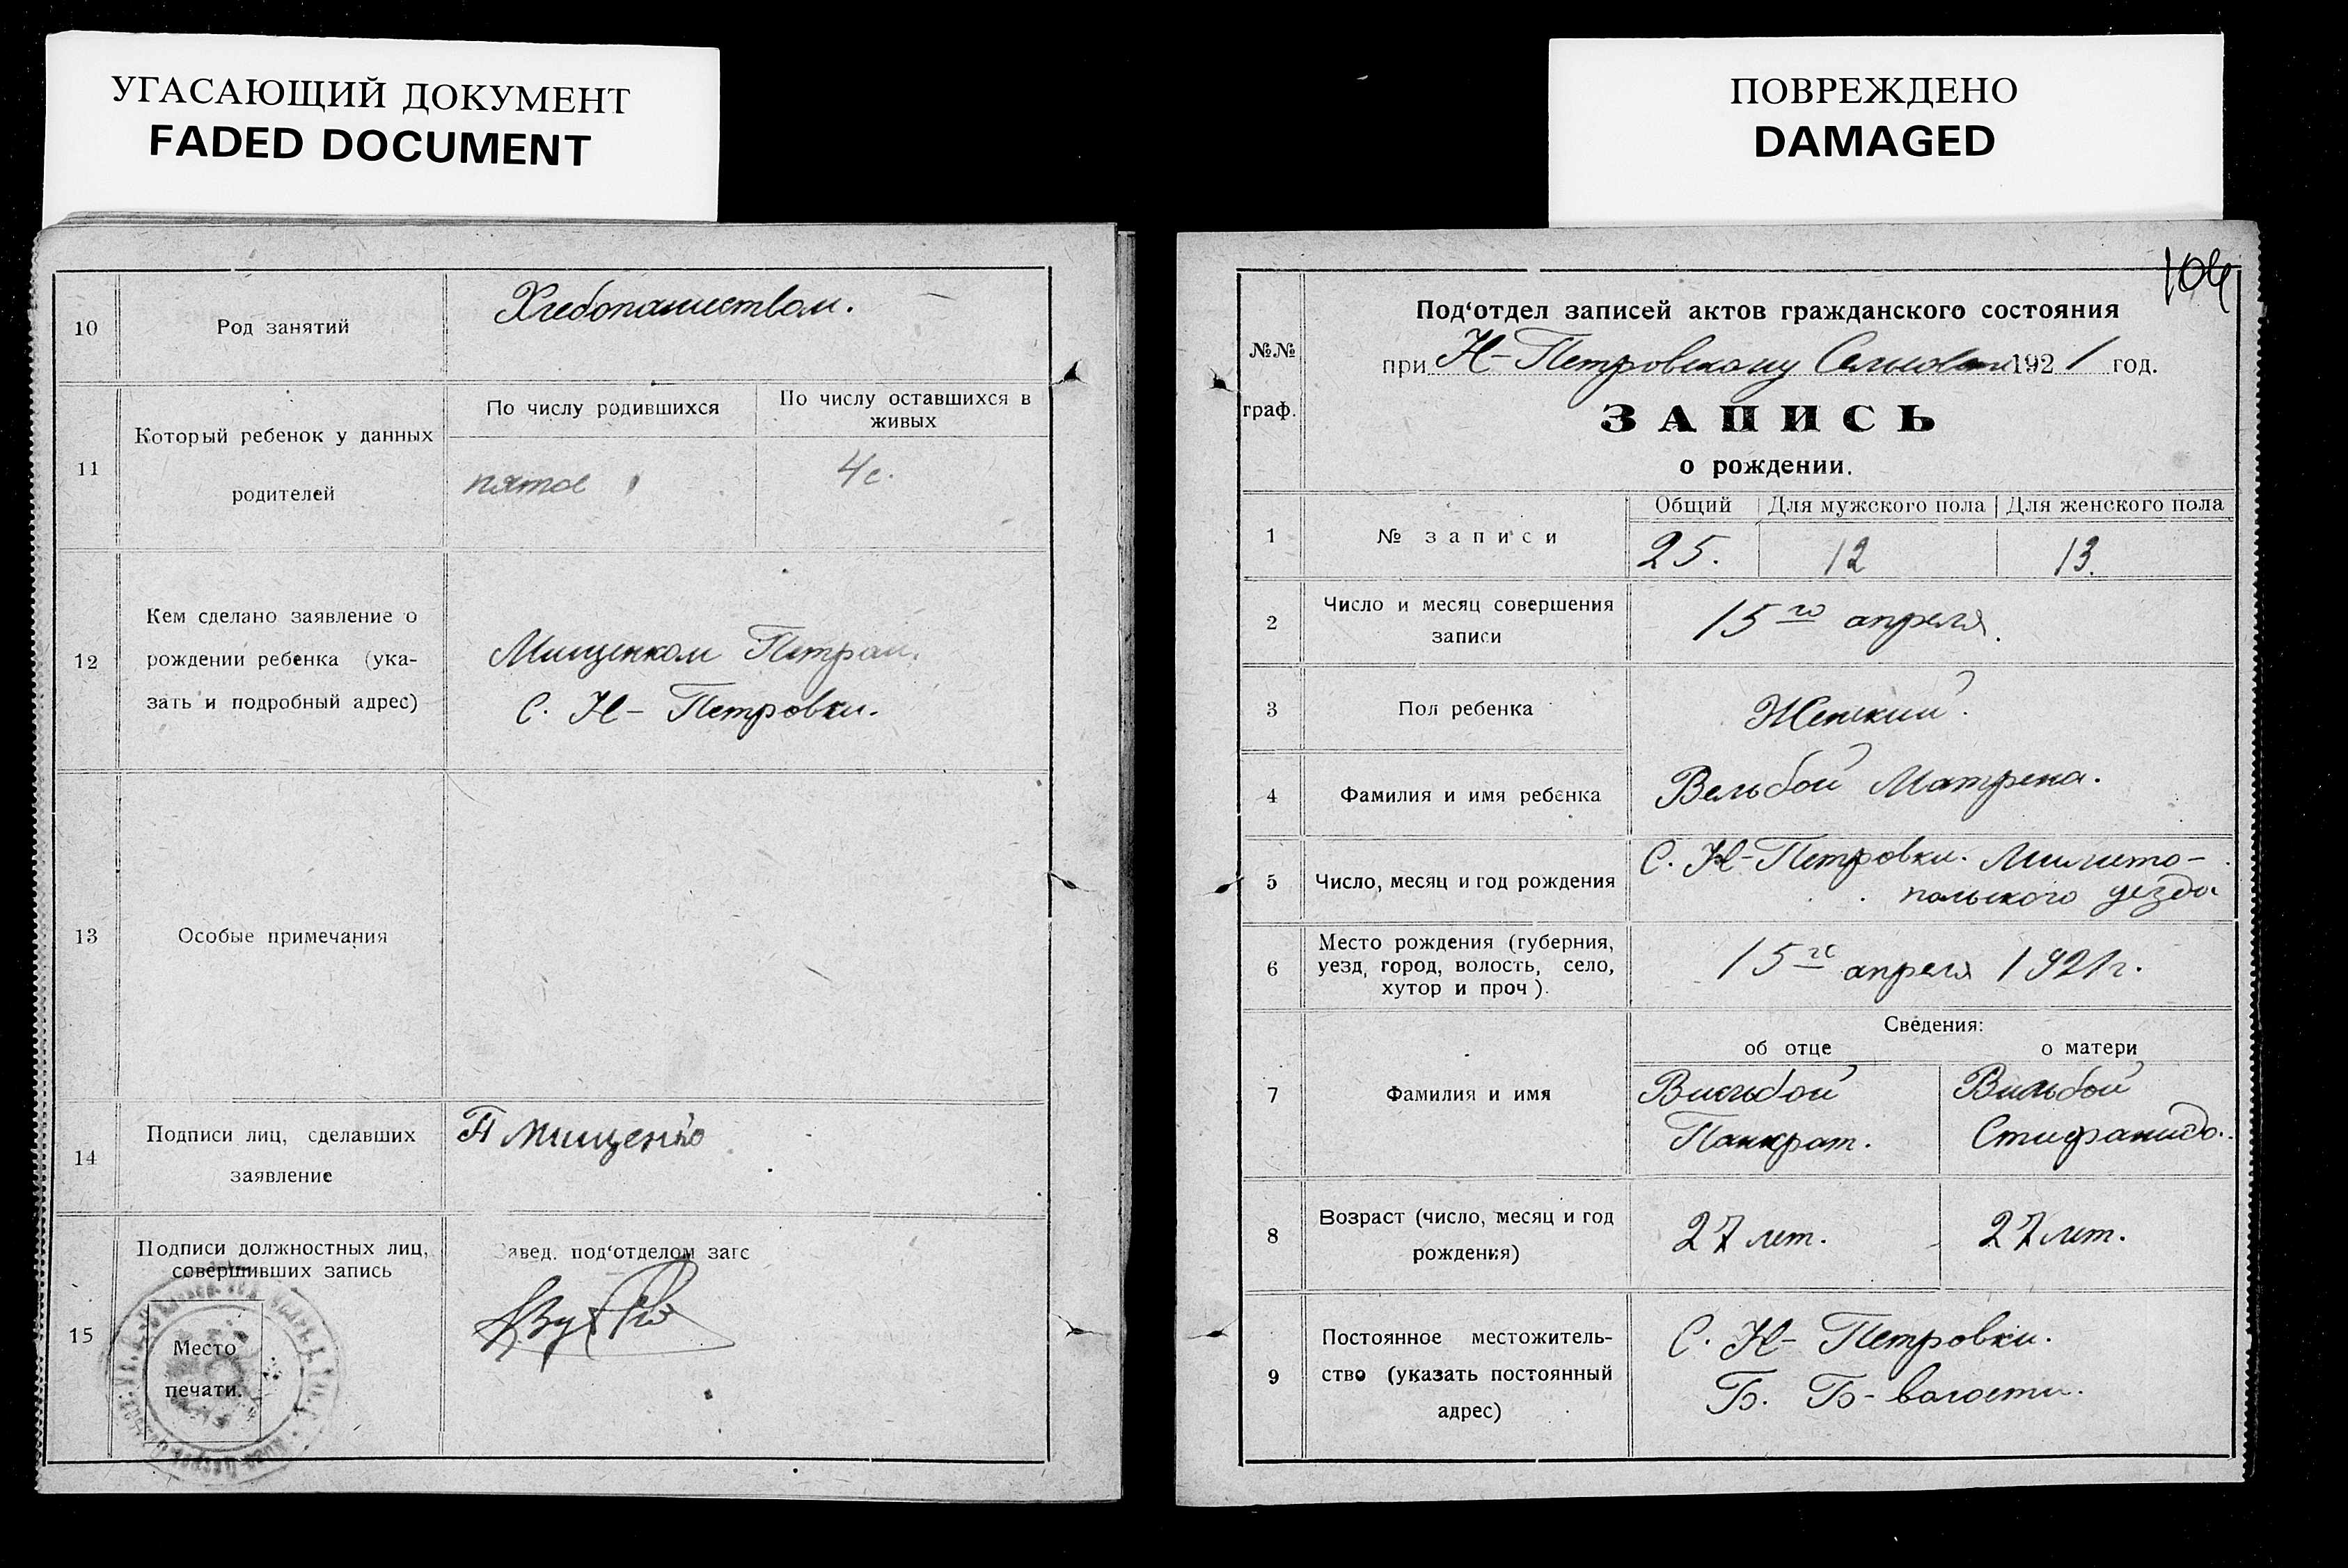 УГАСАЮЩИЙ ДОКУМЕНТ
FADED DOCUMENT
10
Род занятий
Хлебопашеством.
11
Который ребенок у данных
родителей
По числу родившихся
По числу оставшихся в
живых
пятое
4с.
12
Кем сделано заявление о
рождении ребенка (ука-
зать и подробный адрес)
Мищенком Петром.
С. Н- Петровки.
13
Особые примечания
14
Подписи лиц, сделавших
заявление
П Мищенко
15
Подписи должностных лиц,
совершивших запись
Завед. под‘отделом загс
Место
печати.
ПОВРЕЖДЕНО
DAMAGED
104
№№
граф.
Под‘отдел записей актов гражданского состояния
при Н-Петровскому 1921 год.
ЗАПИСЬ
о рождении.
1
№ записи
Общий
Для мужского пола
Для женского пола
25.
12
13.
2
Число и месяц совершения
записи
15го апреля.
3
Пол ребенка
Женский.
4
Фамилия и имя ребенка
Вельбой Матрена.
5
Число, месяц и год рождения
С. Н-Петровки. Милито-
польского уезда
6
Место рождения (губерния,
уезд, город, волость, село,
хутор и проч).
15го апреля 1921г.
7
Фамилия и имя
Сведения:
об отце
о матери
Вильбой
Панкрат.
Вильбой
Стифанида.
8
Возраст (число, месяц и год
рождения)
27 лет.
27 лет.
9
Постоянное местожитель-
ство (указать постоянный
адрес)
С. Н- Петровки.
Б. Б- волости.